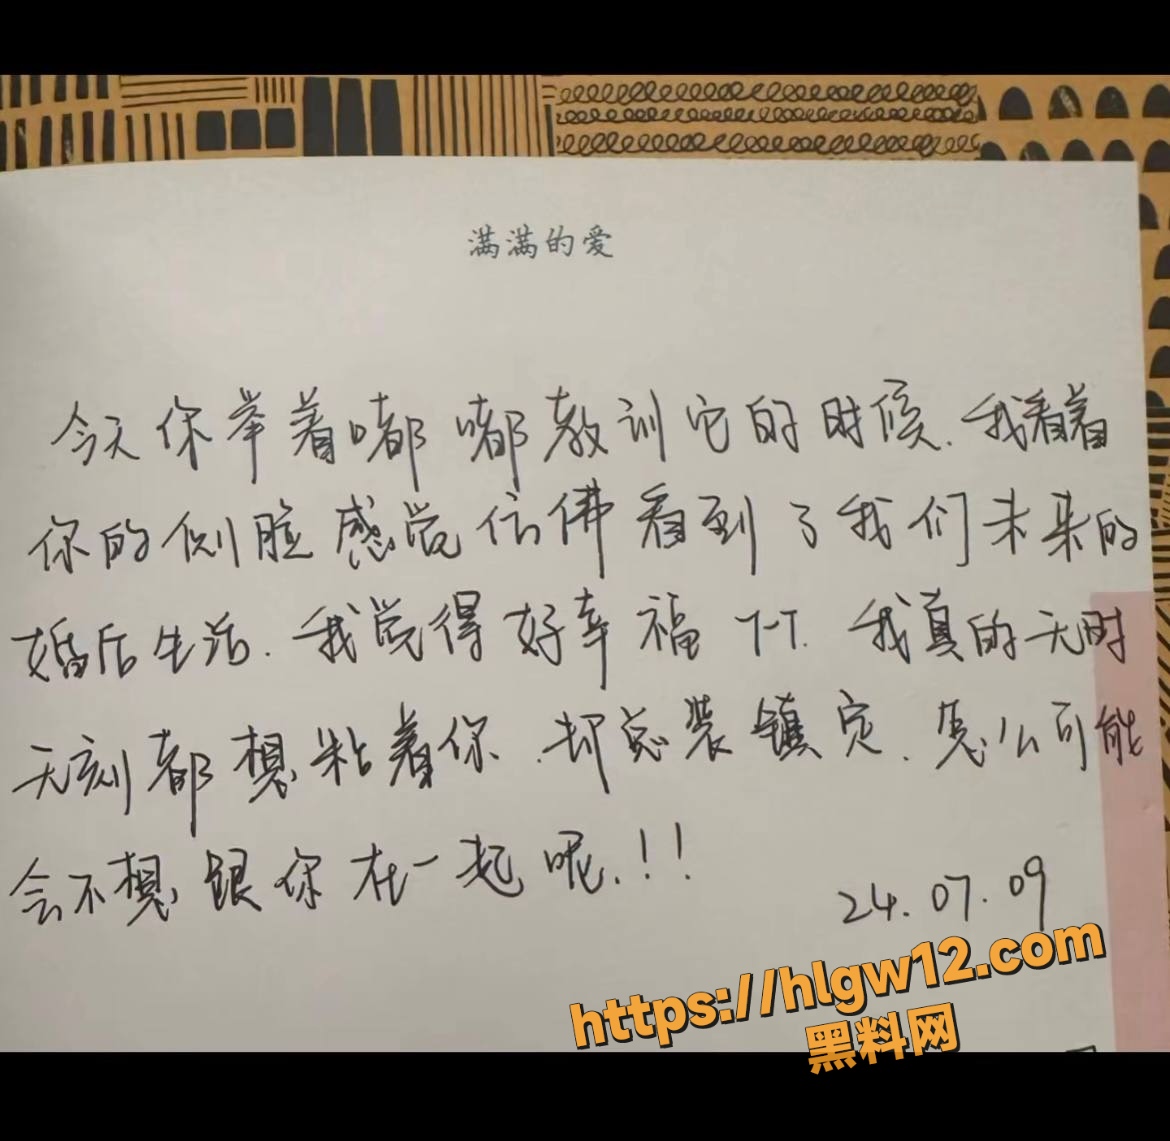 满满的爱
今天你举着嘟嘟教训它的时候.我看着
你的侧脸感觉仿佛看到了我们未来的
婚后生活.我觉得好幸福T-T.我真的无时
无刻都想粘着你.却总装镇定.怎么可能
会不想跟你在一起呢.!!
24.07.09
https://hlgw12.com
黑料网